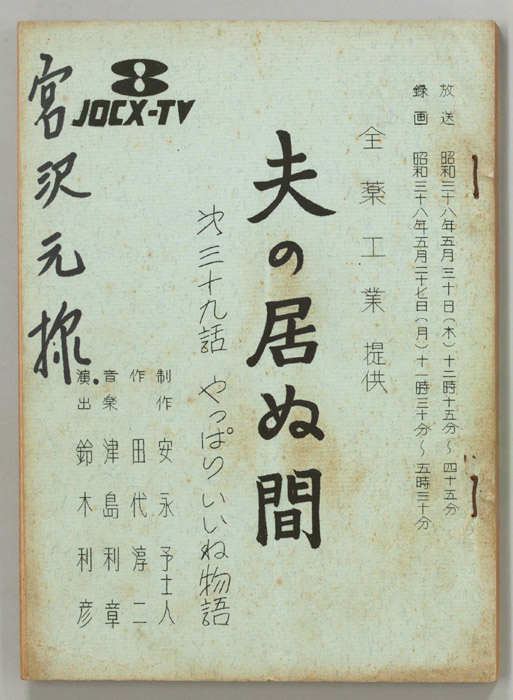 放送 昭和三十八年五月三十日(木)十二時十五分~四十五分
録画 昭和三十八年五月二十七日(月)十一時三十分~五時三十分
全薬工業提供
夫の居ぬ間
才三十九話 やっぱりいいね物語
制作 安永予士人
作 田代淳二
音楽 津島利章
演出 鈴木利彦
8
JOCX-TV
宮沢元様